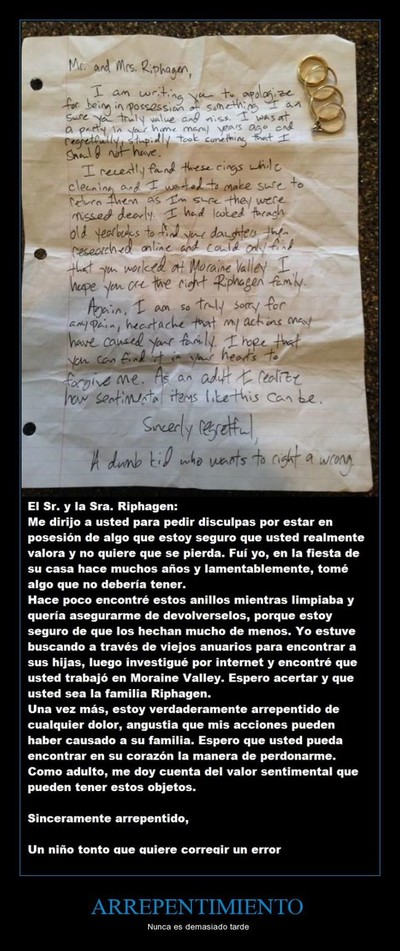 Mr. and Mrs. Riphagen,
I am writing you to apologize
for being in possession of something I am
sure you truly value and miss. I was at
a party in your home many years ago and
regretfully, stupidly took something that I
should not have.
I recently found these rings while
cleaning and I wanted to make sure to
return them as I'm sure they were
missed dearly. I had looked
old yearbooks to find your daughters then
researched online and could only find
that you worked at Moraine Valley I
hope you are the right Riphagen family.
Again, I am so truly sorry for
any pain, heartache that my actions may
have caused your family. I hope that
you can find it in your hearts to
forgive me. As an adult I realize
how sentimental items like this can be.
regretful,
A dumb kid who wants to right a wrong
El Sr. y la Sra. Riphagen:
Me dirijo a usted para pedir disculpas por estar en
posesión de algo que estoy seguro que usted realmente
valora y no quiere que se pierda. Fuí yo, en la fiesta de
su casa hace muchos años y lamentablemente, tomé
algo que no debería tener.
Hace poco encontré estos anillos mientras limpiaba y
quería asegurarme de devolverselos, porque estoy
seguro de que los hechan mucho de menos. Yo estuve
buscando a través de viejos anuarios para encontrar a
sus hijas, luego investigué por internet y encontré que
usted trabajó en Moraine Valley. Espero acertar y que
usted sea la familia Riphagen.
Una vez más, estoy verdaderamente arrepentido de
cualquier dolor, angustia que mis acciones pueden
haber causado a su familia. Espero que usted pueda
encontrar en su corazón la manera de perdonarme.
Como adulto, me doy cuenta del valor sentimental que
pueden tener estos objetos.
Sinceramente arrepentido,
Un niño tonto que quiere corregir un error
ARREPENTIMIENTO
Nunca es demasiado tarde